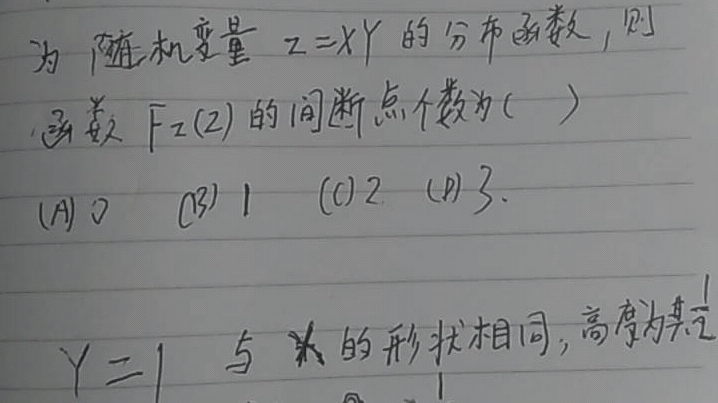 为随机变量 Z=XY 的分布函数,则
函数 Fz(Z) 的间断点个数为( )
(A) 0 (B) 1 (C) 2 (D) 3.
Y=1 与 X 的形状相同,高度为其1/2
1